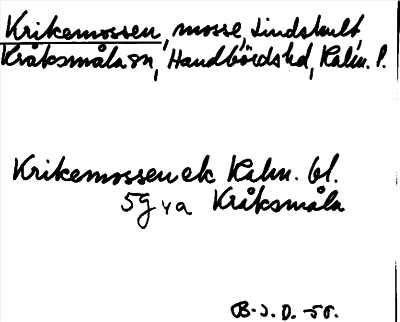 Krikemossen, mosse, Lindshult,
Kråksmåla sn, Handbörds hd, Kalm. l.
Krikemossen ek Kalm. bl.
5g va Kråksmåla
B.J.D. -58.